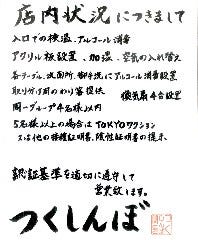 店内状況につきまして
入口での検温、アルコール消毒
アクリル板設置、加湿、空気の入れ替え
各テーブル、洗面所、御手洗にアルコール消毒設置
取り分け用のわり箸提供　換気扇4台設置
同一グループ4名様以内
5名様以上の場合はTOKYOワクション
又は他の接種証明書、陰性証明書の提示
認証基準を適切に遵守して
営業致します。
つくしんぼ